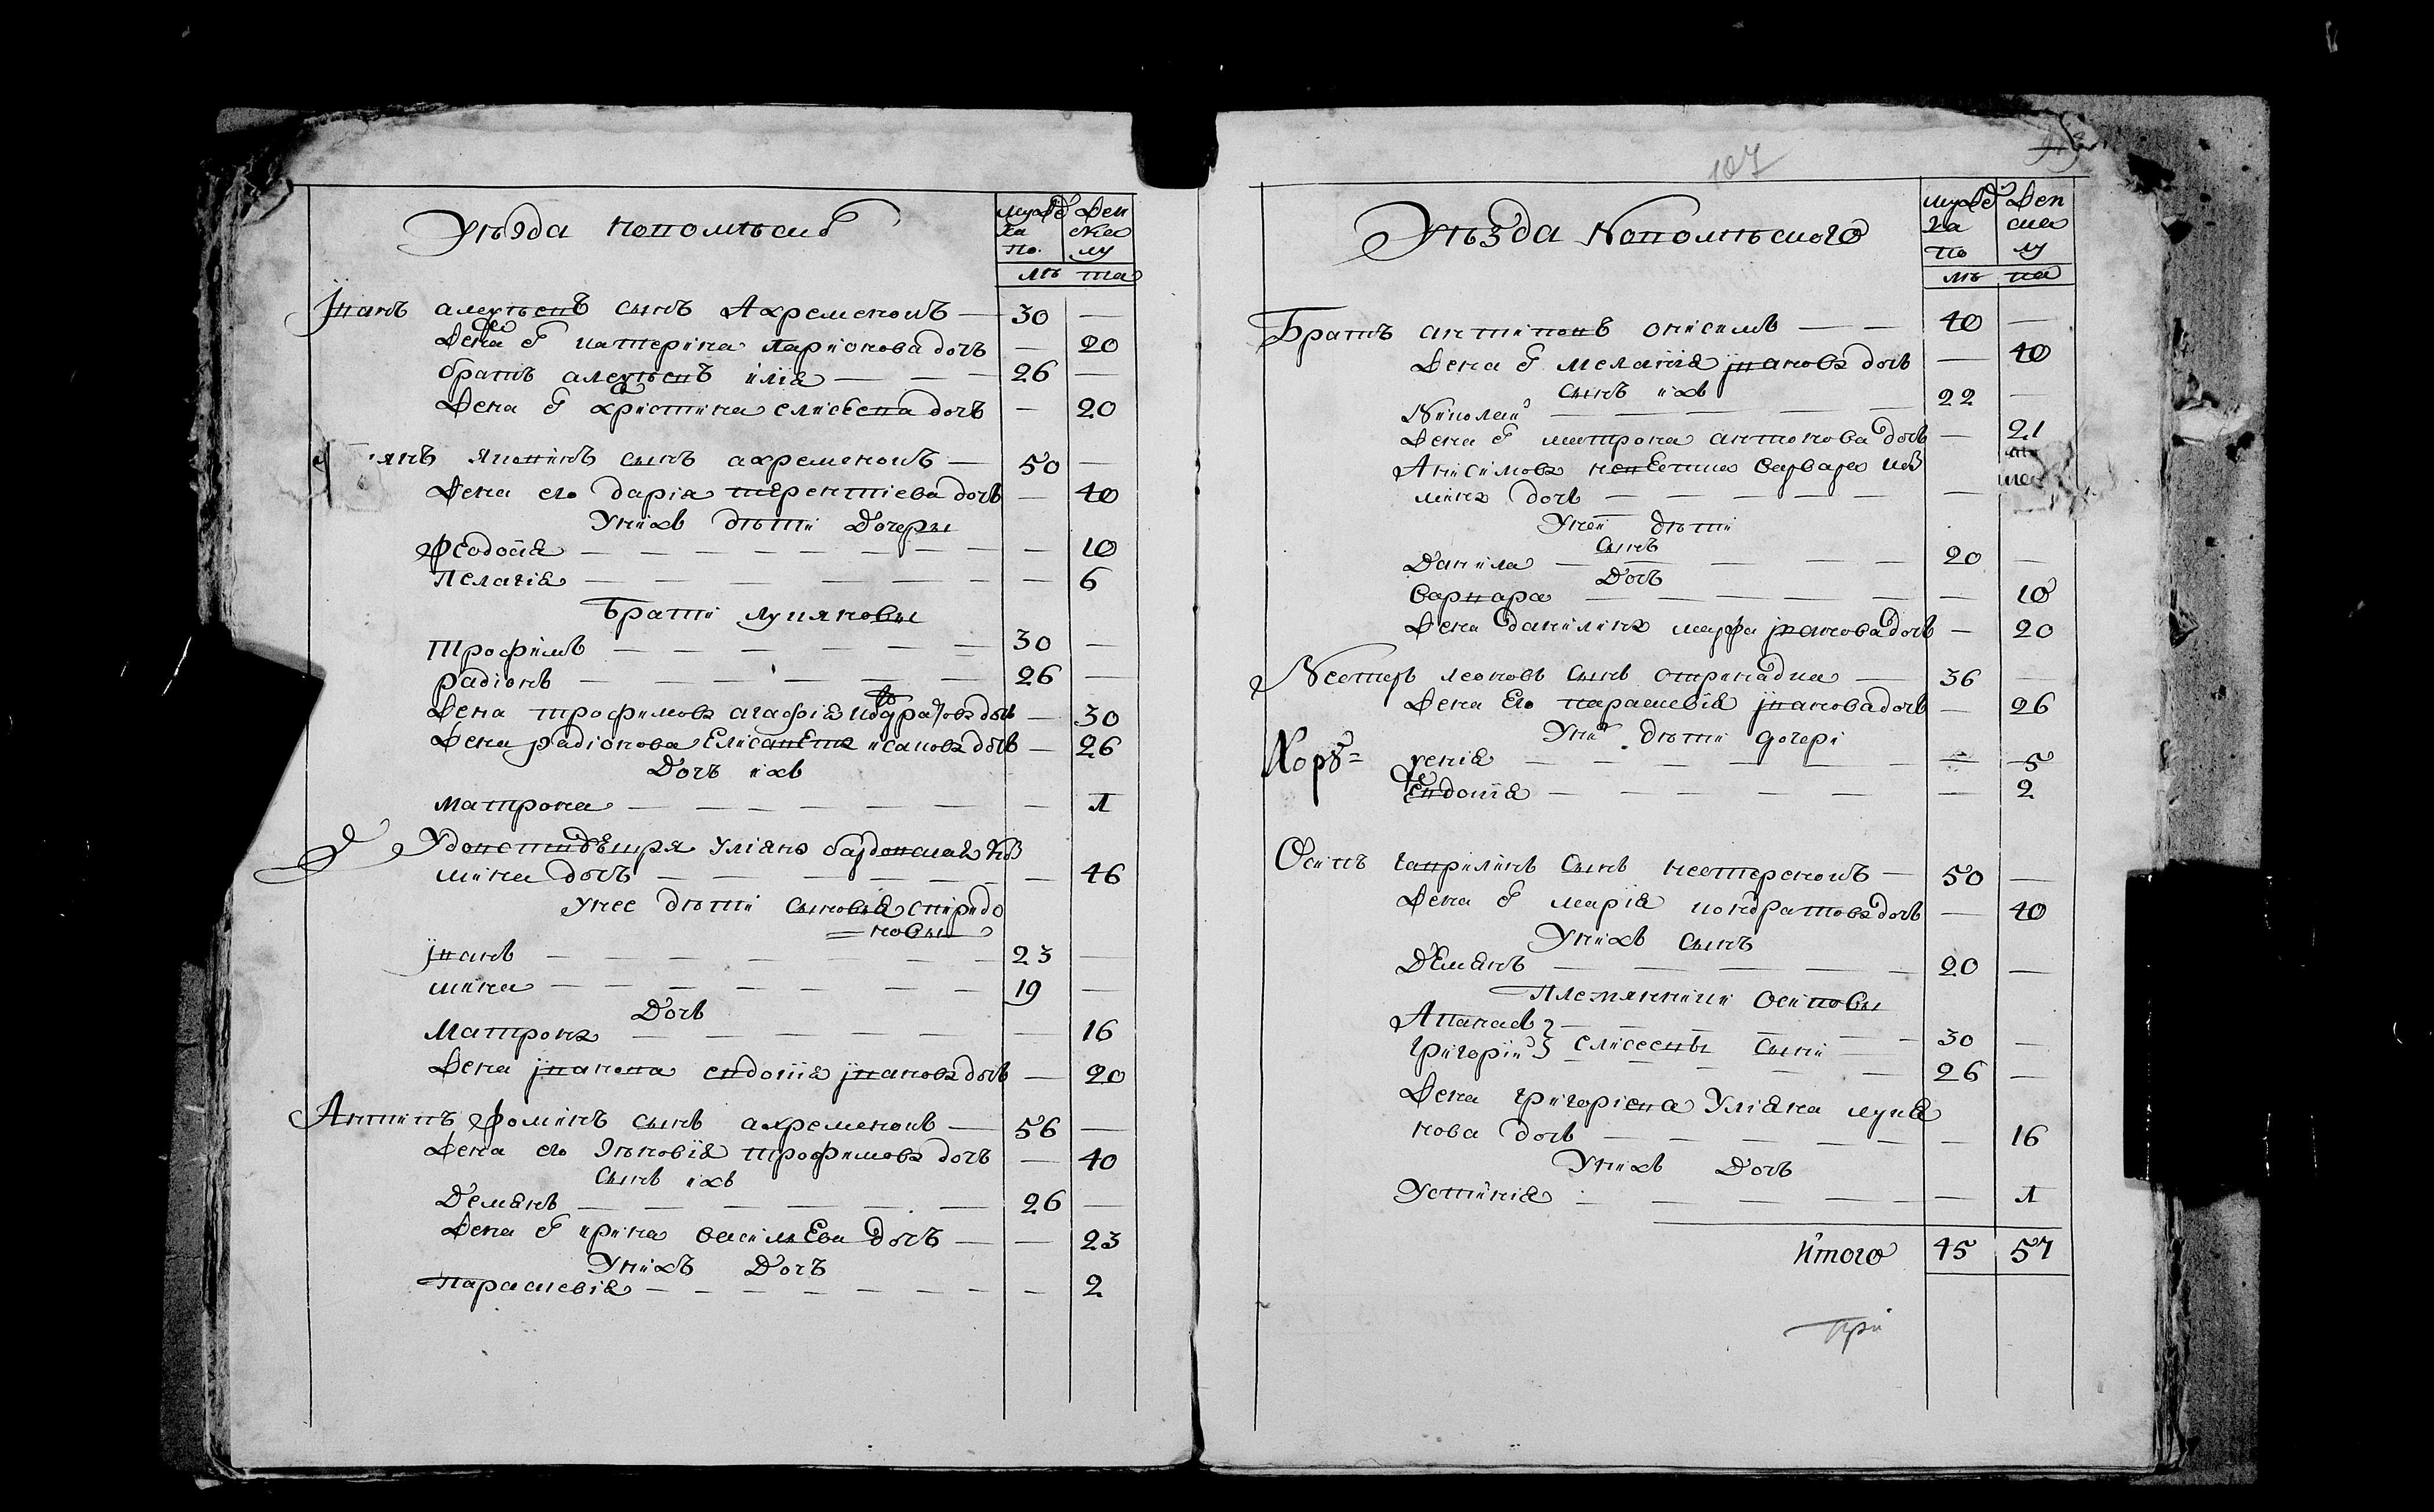 Уѣзда Новомѣсц
мужеска по
женска му
лѣта
Іванъ алеѯѣевъ сынъ Ахременокъ — 30 —
Жена Ег катерина ларионова дочь — 20
братъ алеѯѣевъ илия — 26 —
Жена Ег христина елисеева дочь — 20
янъ яковинъ сынъ ахременокъ — 50 —
Жена его дария терентиева дочь — 40
Унихъ дѣти Дочеры
Феодосия — 10
Пелагия — 6
Брати лукяновы
Трофимъ — 30 —
радионъ — 26 —
Жена трофимова агафия кодратова дочь — 30
Жена радионова Елисавета исакова дочь — 26
Дочь ихъ
матрона — 1
Удовствующая улияна
мина дочь — 46
Унее дѣти сыновья спиридо
= новы
Іванъ — 23 —
мина — 19 —
Дочь
Матрона — 16
Жена іванова евдокия іванова дочь — 20
Антипъ фоминъ сынъ ахременокъ — 56 —
Жена его зѣновия трофимова дочь — 40
Сынъ ихъ
Демянъ — 26 —
Жена Ег ирина василиева дочь — 23
Унихъ Дочъ
параскевия — 2
107
Уѣзда Новомѣского
мужеска по
Женска му
лѣта
Братъ антиповъ онисимъ — 40 —
Жена Ег мелания іванова дочь — 40
сынъ ихъ
Николай — 22 —
Жена Ег матрона антонова дочь — 21
Анисимова невестка варвара коз
мина дочь —
Уней дѣти
Сынъ
Данила — 20 —
Дочь
варвара — 10
Жена данилина марфа іванова дочь — 20
Нестеръ леоновъ сынъ отринадка — 36 —
Жена Его параскевия іванова дочь — 26
Уних дѣти дочери
ѯения — 5
Евдокия — 2
Осипъ гаврилинъ сынъ нестеренокъ — 50 —
Жена Ег мария кондратова дочь — 40
Унихъ сынъ
Демянъ — 20 —
Племянники осиповы
Апанасъ — 30 —
григорий } елисеевы сыни — 26 —
Жена григориева Улияна лукя
нова дочь — 16
Унихъ Дочъ
Устиния — 1
Итого 45 57
При